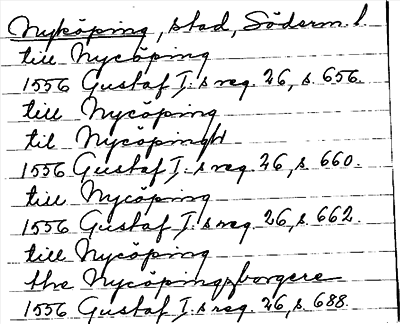 Nyköping, stad, Söderm. l.
till Nycöping
1556 Gustaf I:s reg. 26, s. 656.
till Nycöping
til Nycöpingh
1556 Gustaf I:s reg. 26, s. 660.
till Nycöping
1556 Gustaf I:s reg. 26, s. 662.
till Nycöping
the Nycöpings borgere
1556 Gustaf I:s reg. 26, s. 688.